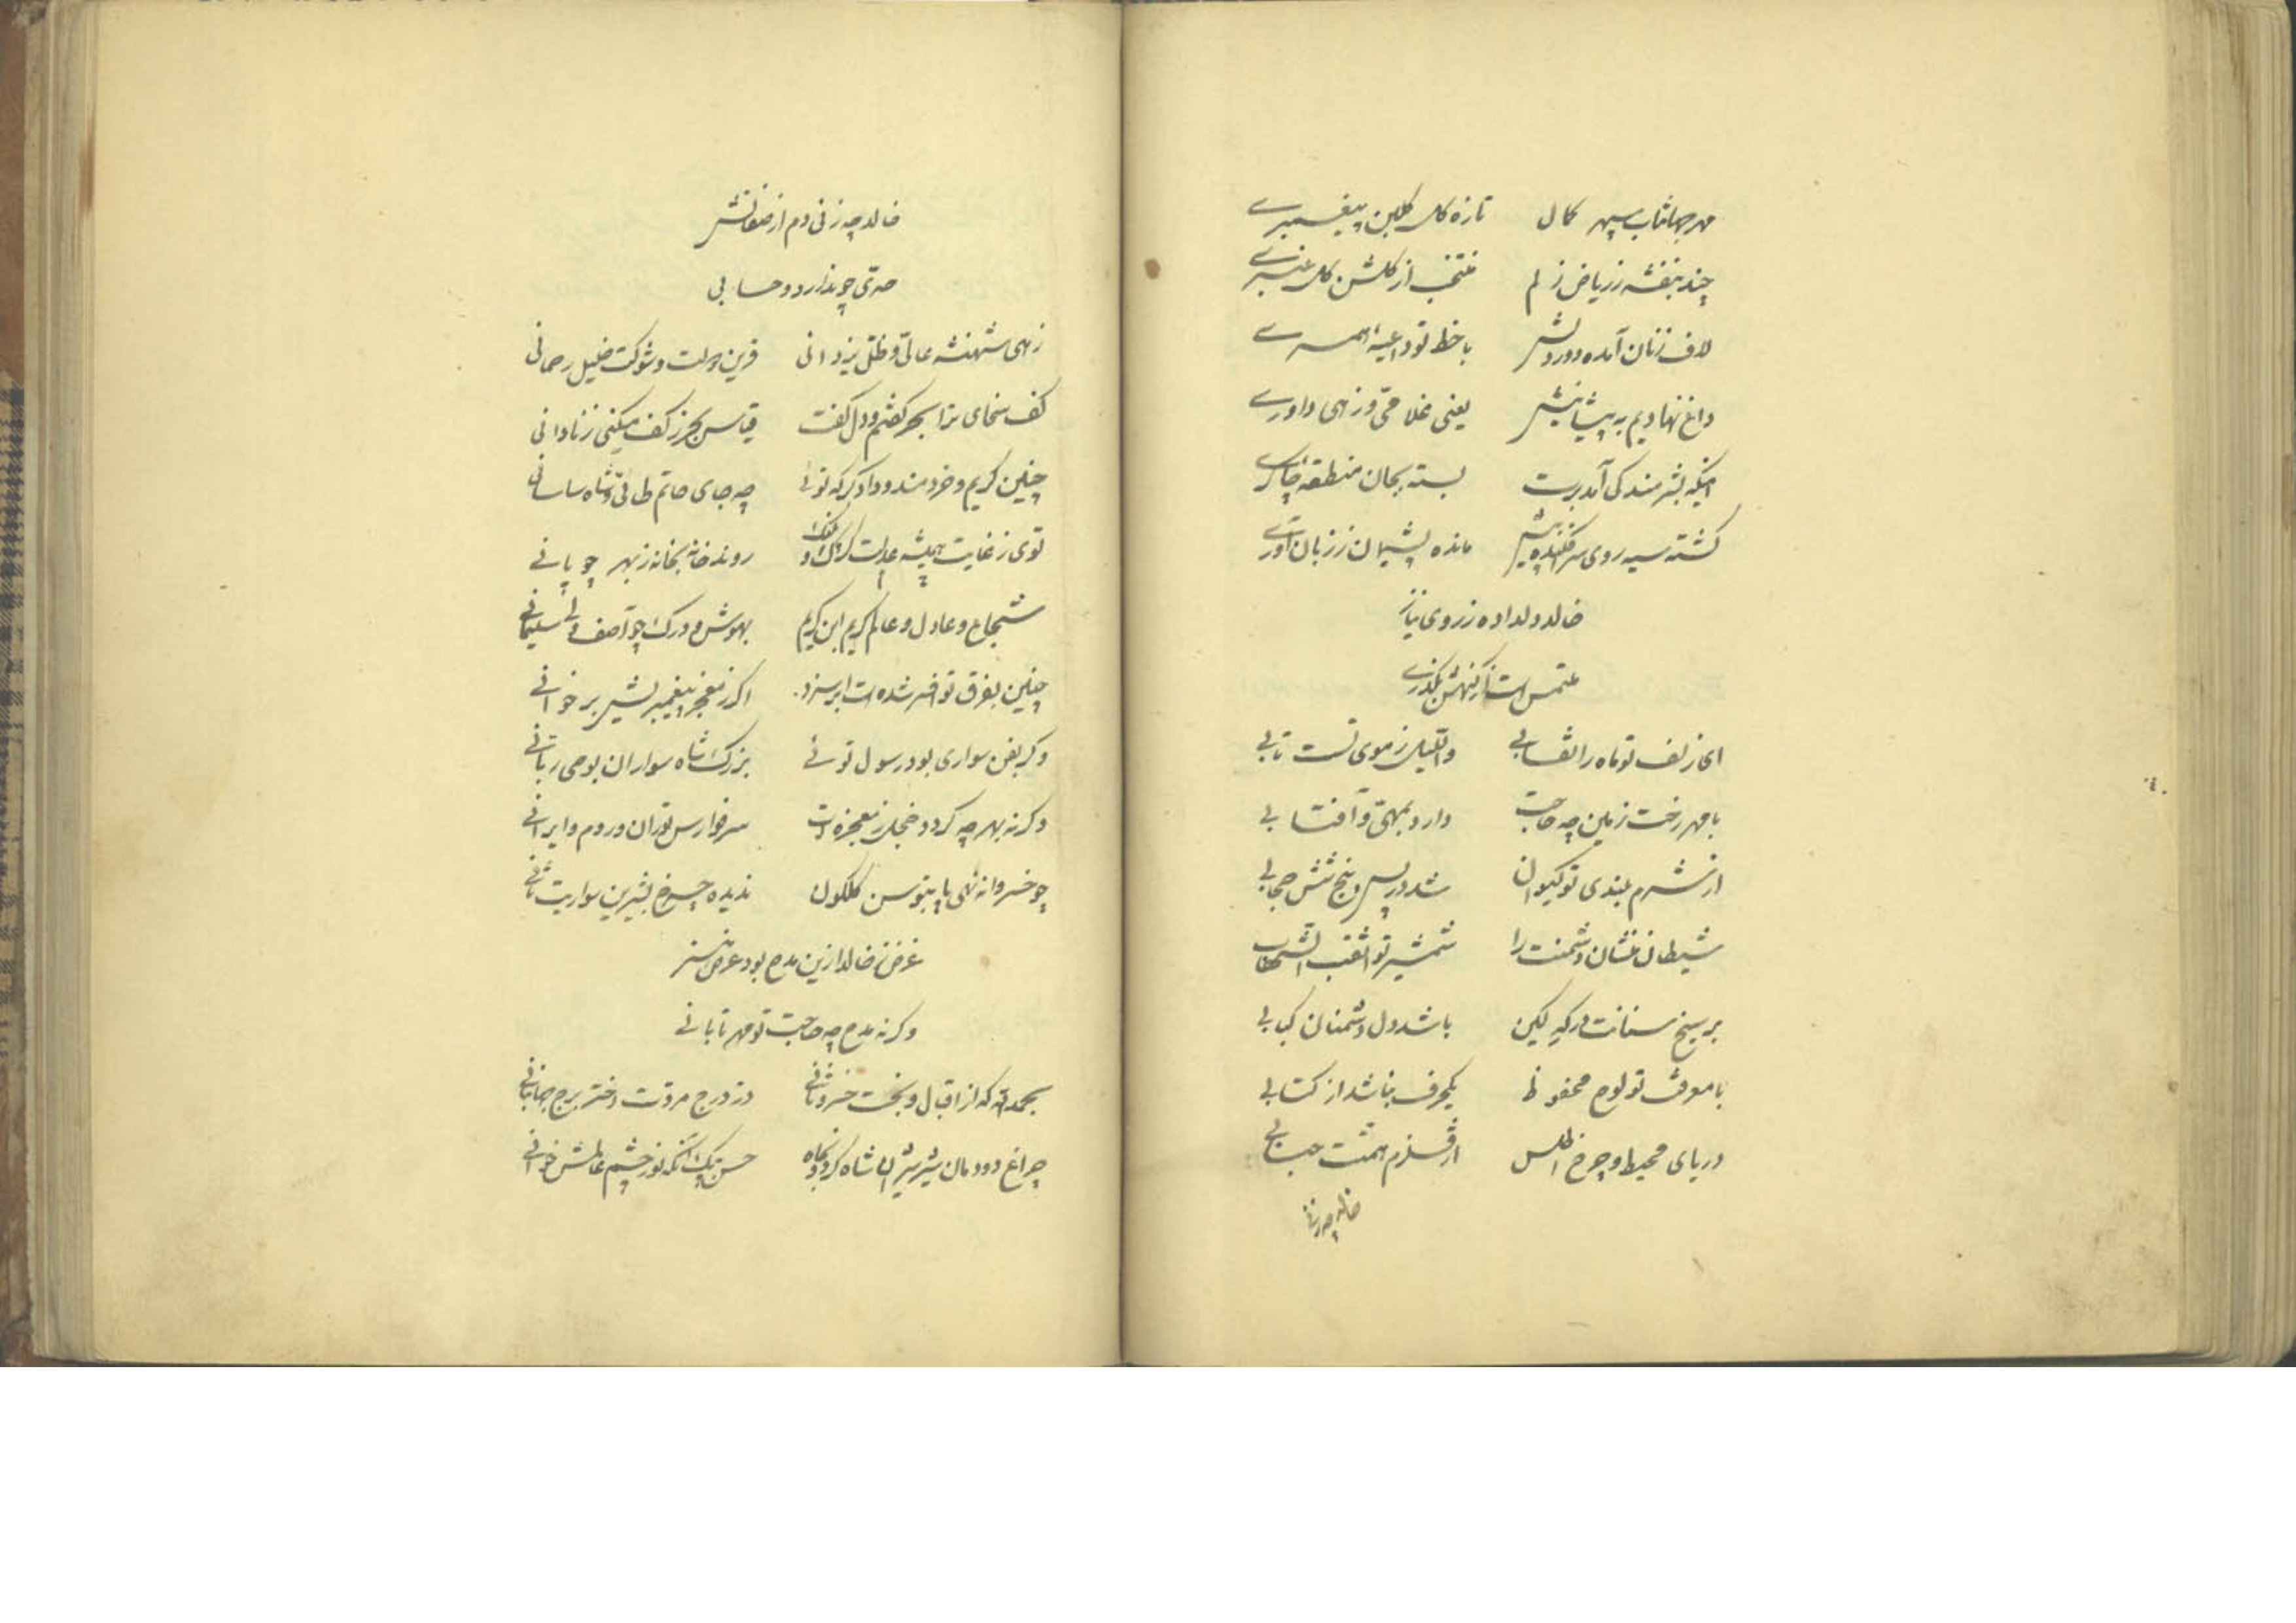 مهر جهانتاب سپهر کمال تازه کل کلبن پیغمبرے
چند بنفشه ز ریاض زلم منتخب از کلشن کل عنبرے
لاف زنان آمده دور درش با خط تو داعیهٔ همسرے
داغ نهادیم به پیشانیش یعنی غلامی و زهی داورے
اینکه بشرمندکی آمد برت بسته بجان منطقهٔ چاکرے
کشته سیه روی سر افکنده پیش مانده پشیمان ز زبان آورے
خالد دلداده ز روی نیاز
ملتمس است از کنهش بکذرے
ای زلف تو ماه را نقابی واللیل ز موی تست تابی
با مهر رخت زمین چه حاجت دارد بمهی و آفتابی
از شرم بلندی تو کیوان شد در پس پنج شش حجابی
شیطان منشان دشمنت را شمشیر تو اثقب الشهابی
بر سیخ سنانت در که کین باشد دل دشمنان کبابی
با معرفت تو لوح محفوظ یکحرف بناشد از کتابی
دریای محیط و چرخ اطلس از قلزم همتت حبابی
خالد چه زنی
خالد چه زنی دم از صفاتش
مدحی چو ندارد و حسابی
زهی شهنشه عالی و ظل یزدانی قرین دولت و شوکت خلیل رحمانی
کف سخای ترا بحر کفتم و دل کفت قیاس بحر ز کف میکنی ز نادانی
چنین کریم و خردمند و دادکر که توئی چه جای حاتم طائی و شاه ساسانی
توی ز غایت همیشه عدلت کرک و روند خانه بخانه ز بهر چوپانے
شجاع و عادل و عالم کریم ابن کریم بهوش و درک چو آصف ولی سلیمانے
چنین بفرق تو افسر شده است ابر سزد اکر ز معجز پیغمبریش بر خوانے
وکر بفن سواری بود رسول توئے بزرک شاه سواران بوحی ربانے
وکرنه بهر چه کردد خجل ز معجزه ات سر فوارس توران و روم و ایرانے
چو خسروانه نهی پا بتوسن کلکون ندیده چرخ بشیرین سواریت ثانے
غرض ز خالد ازین مدح بود عرض هنر
وکرنه مدح چه حاجت تو مهر تابانے
بحمدالله که از اقبال و بخت خسرو ثانے در درج مروت اختر برج جهانبانے
چراغ دودمان شیر شیران شاه کردون جاه حسن بیک آنکه نور چشم عالمش خوانے